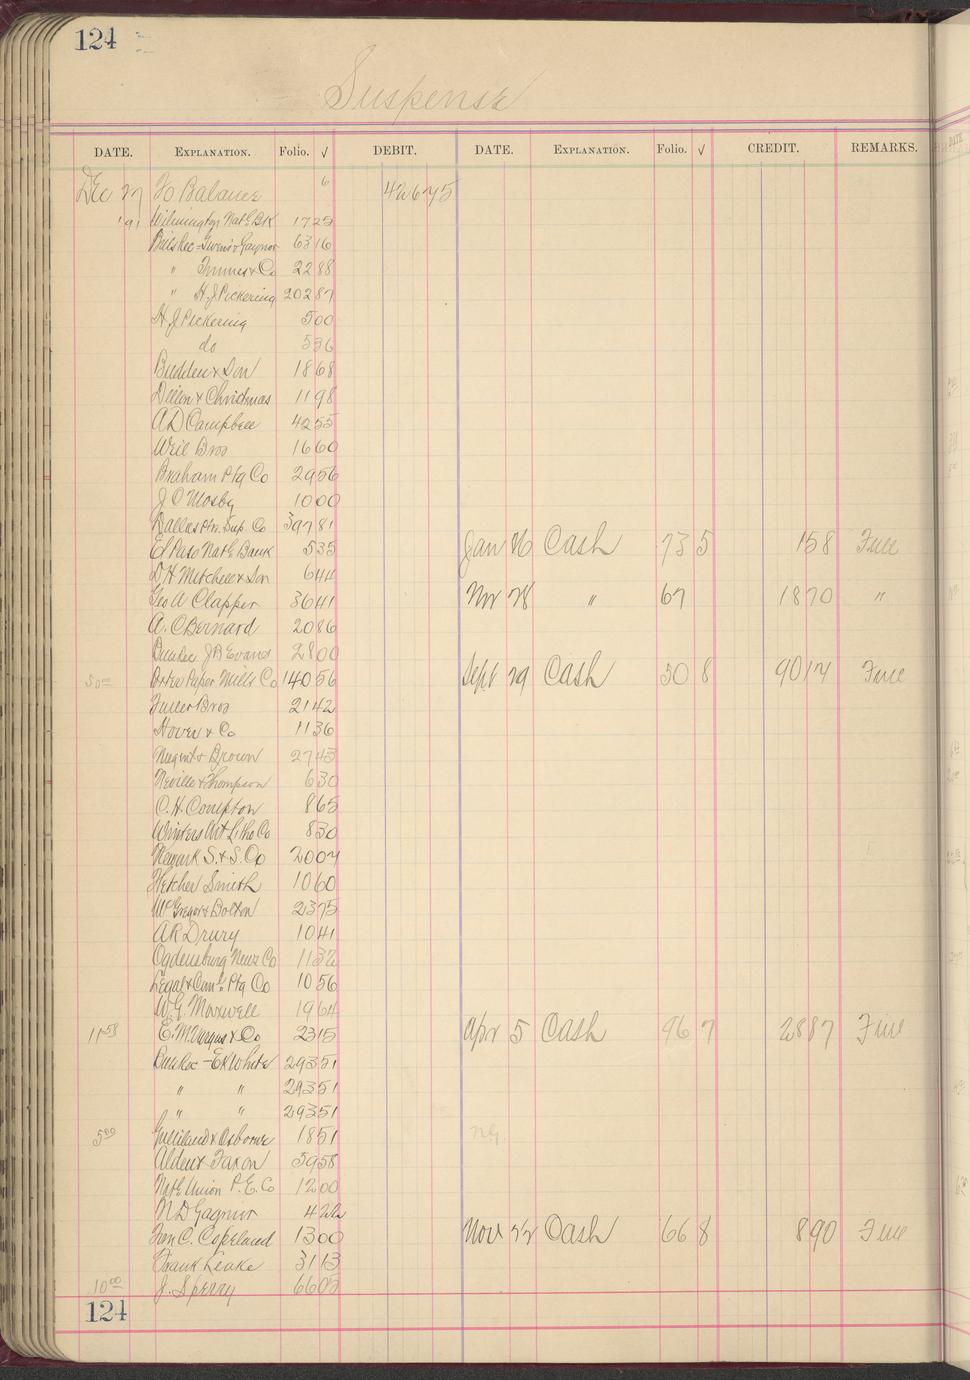 124
Suspense
DATE. EXPLANATION. Folio. √ DEBIT. DATE. EXPLANATION. Folio. √ CREDIT. REMARKS.
Dec 27 To Balance 6 426 75
'91 Wilmington Nat'l Bk 17 25
Bills Rec - Gaynor 63 16
" & Co 22 88
" H. J. Pickering 202 87
H J Pickering 5 00
do 5 56
Budden & Son 18 68
& Christmas 11 98
A D Campbell 42 55
Weil Bros 16 60
Braham Ptg Co 29 56
J C Mosby 10 00
Dallas Sup. Co 397 81
El Paso Nat'l Bank 5 35 Jan 16 Cash 73 5 1 58 Full
D H Mitchell & Son 6 44
Geo A Clapper 36 41 Nov 28 " 67 18 70 "
A. C Bernard 20 86
J B Evans 28 00
50 00 Paper Mills Co 140 56 Sept 29 Cash 50 8 90 17 Full
Fuller Bros 21 42
Hover & Co 11 36
Nugent & Brown 27 43
Neville & Thompson 6 30
C. H. Compton 8 65
Winters Art Litho Co 8 30
Newark S. & S. Co 20 07
Fletcher Smith 10 60
McGregor & Bolton 23 75
A R Drury 10 41
Ogdensburg News Co 11 32
Legal & Com'l Ptg Co 10 56
W. G. Maxwell 19 64
11 58 E. M. & Co 23 15 Apr 5 Cash 96 7 28 87 Full
- E K White 293 51
" " 293 51
" " 293 51
5 00 Gilliland & Osborne 18 51 N.G.
Alden & Faxon 39 58
Nat'l Union P. E. Co 12 00
N D Gagnier 4 22
C. Copeland 13 00 Nov 22 Cash 66 8 8 90 Full
Frank Leake 31 13
10 00 J. Sperry 66 05
124